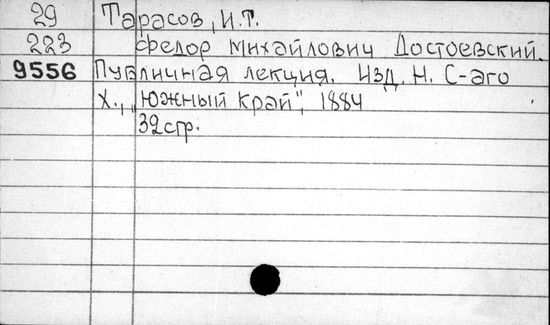 29 Тарасов, И.Т.
223 Федор Михайлович Достоевский.
9556 Публичная лекция. Изд. Н. С-аго
Х., „Южный край", 1884
32 стр.